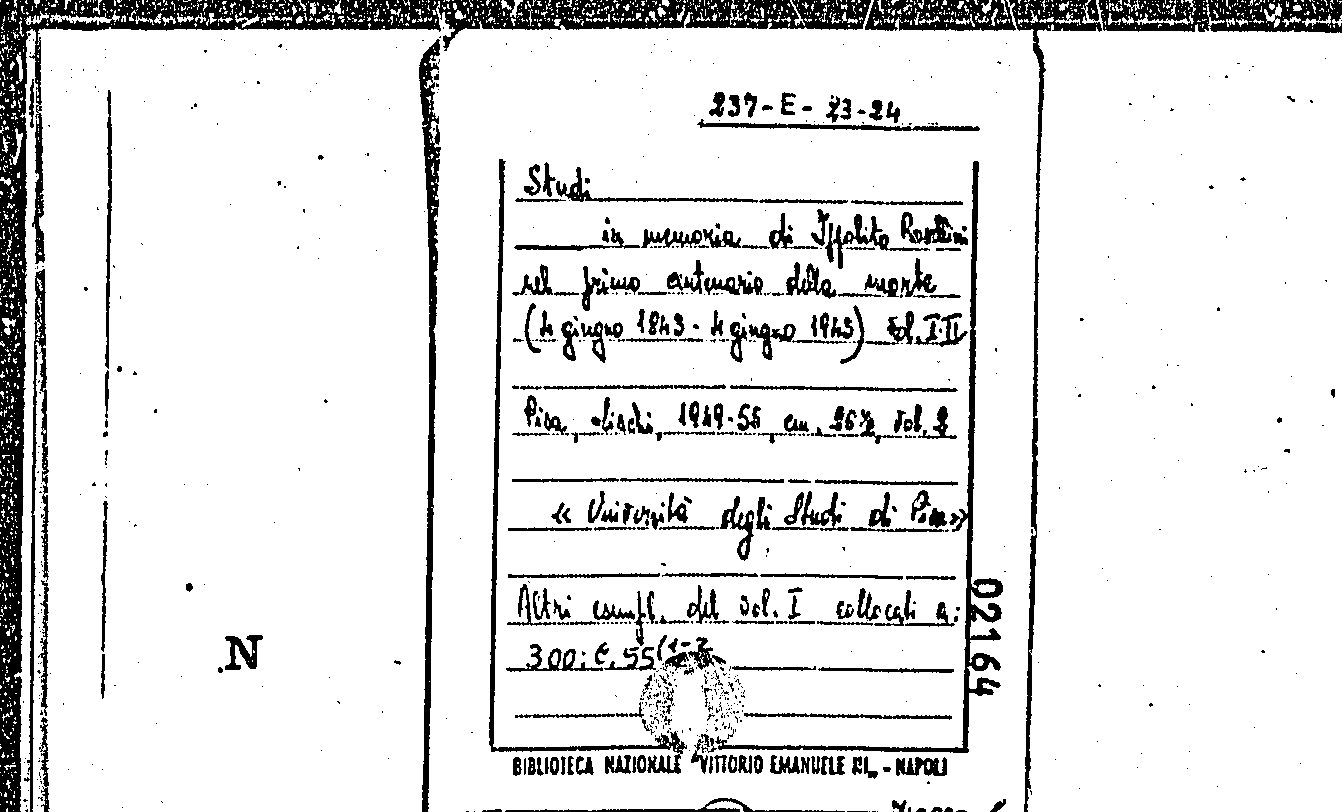 237-E-23-24
Studi
in memoria di Ippolito Rosellini
nel primo centenario della morte
(4 giugno 1843 - 4 giugno 1943) Vol. I-II
Pisa, Lischi, 1949-55, cm. 26½, vol. 2
« Università degli Studi di Pisa»
Altri esempl. del vol. I collocati a:
300: C. 55(1-2
02164
.N
BIBLIOTECA NAZIONALE "VITTORIO EMANUELE III„ - NAPOLI